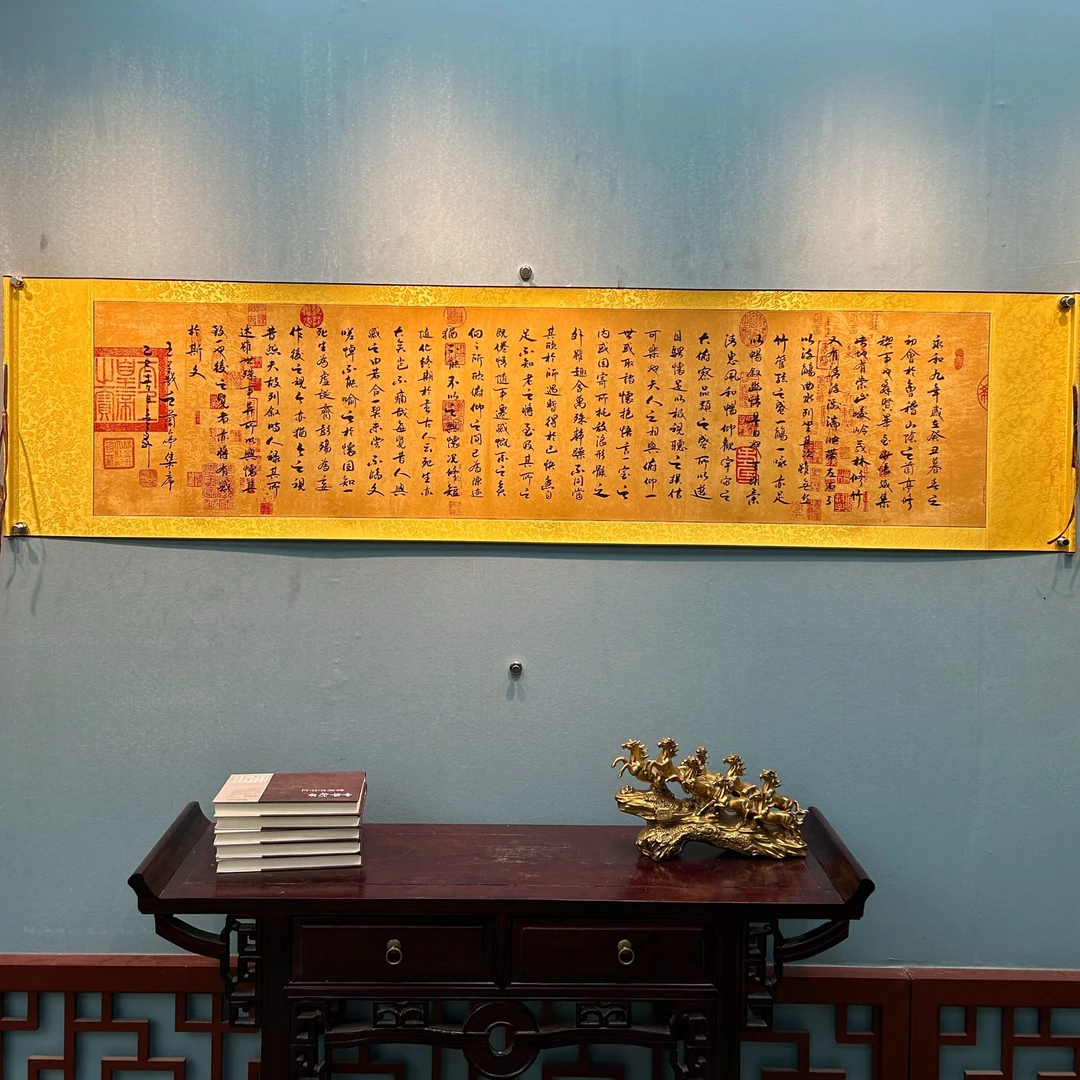 永和九年歲在癸丑暮春之
初會於會稽山陰之蘭亭脩
禊事也群賢畢至少長咸集
此地有崇山峻嶺茂林脩竹
又有清流激湍映帶左右引
以為流觴曲水列坐其次雖無絲
竹管弦之盛一觴一詠亦足
以暢敘幽情是日也天朗氣
清惠風和暢仰觀宇宙之
大俯察品類之盛所以遊
目騁懷足以極視聽之娛信
可樂也夫人之相與俯仰一
世或取諸懷抱悟言一室之
內或因寄所託放浪形骸之
外雖趣舍萬殊靜躁不同當
其欣於所遇暫得於己快然自
足不知老之將至及其所之
既倦情隨事遷感慨係之矣
向之所欣俯仰之間已為陳迹
猶不能不以之興懷況脩短
隨化終期於盡古人云死生亦
大矣豈不痛哉每覽昔人興
感之由若合一契未嘗不臨文
嗟悼不能喻之於懷固知一
死生為虛誕齊彭殤為妄
作後之視今亦猶今之視
昔悲夫故列敘時人錄其所
述雖世殊事異所以興懷其
致一也後之覽者亦將有感
於斯文
王羲之蘭亭集序